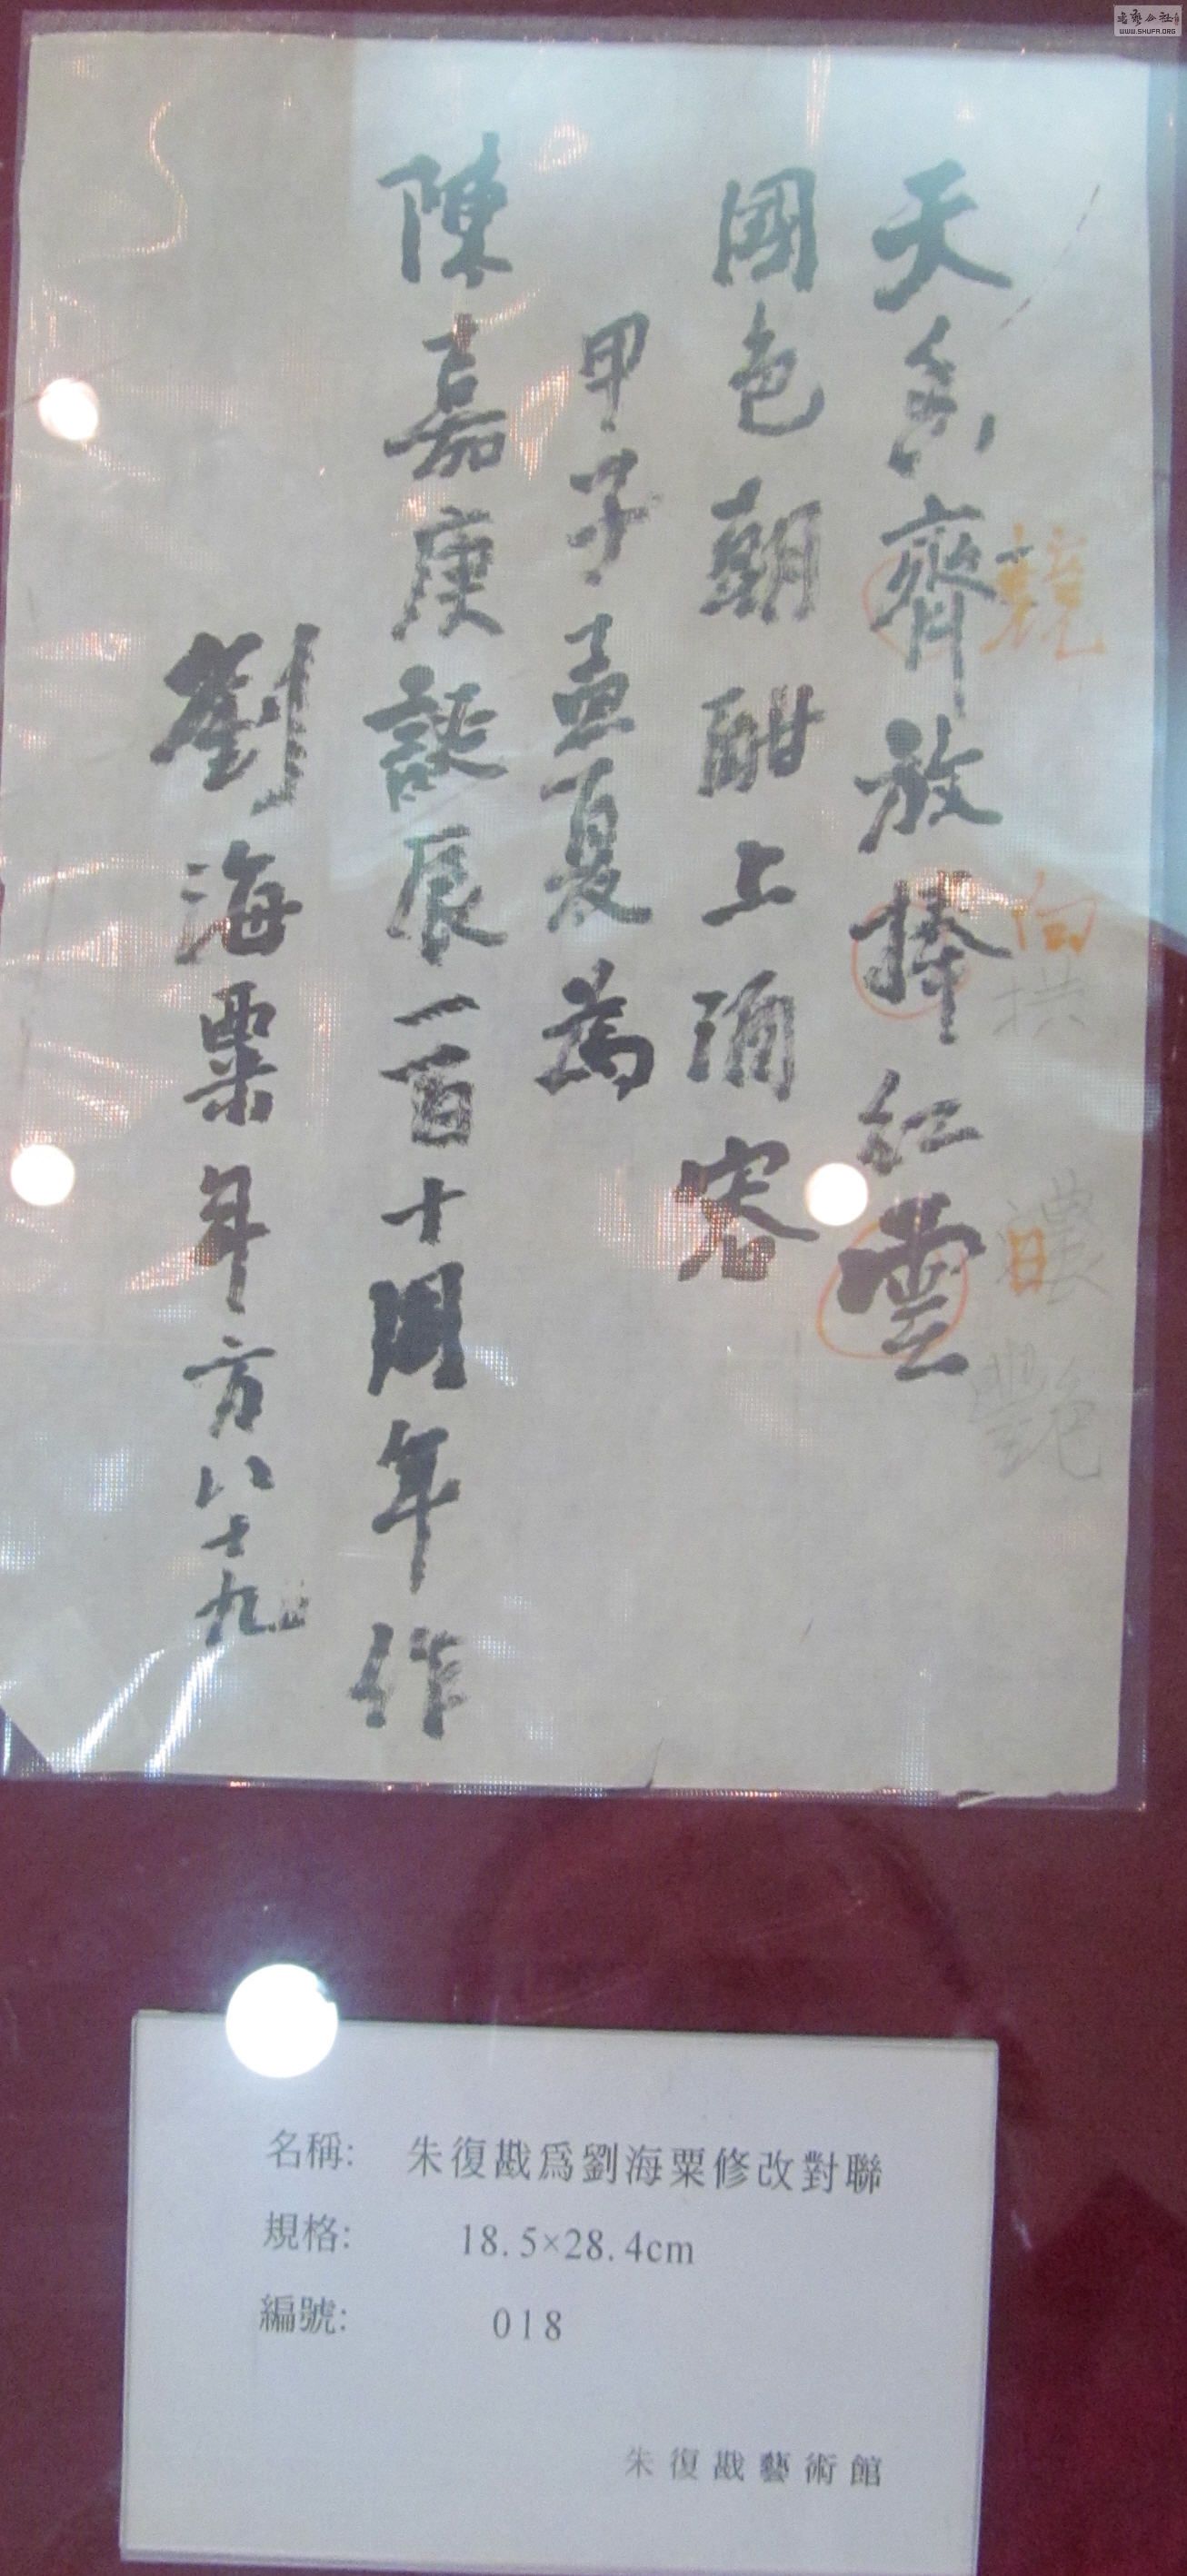 天香齊放捧紅雲
競
向
拱
日
濃
艷
國色朝酣上酒容
甲子孟夏為
陳嘉庚誕辰一百十周年作
劉海粟年方八十九
名稱: 朱復戡爲劉海粟修改對聯
規格: 18.5×28.4cm
編號: 018
朱復戡藝術館
WWW.SHUFA.ORG